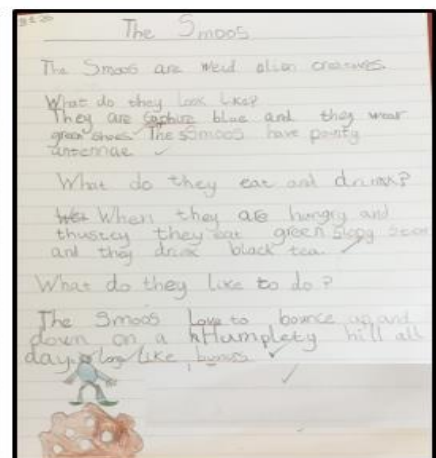 The Smoos
The Smoos are weird alien creatures.
What do they look like?
They are saphire blue and they wear
green shoes. The Smoos have pointy
antennae
What do they eat and drink?
When they are hungry and
thustey they eat green slopy
and they drink black tea.
What do they like to do?
The Smoos Love to bounce up and
down on a hHumplety hill all
day long like